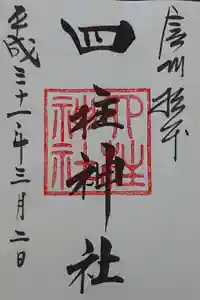 信州松本
四柱神社
四柱神社
平成三十一年三月二日